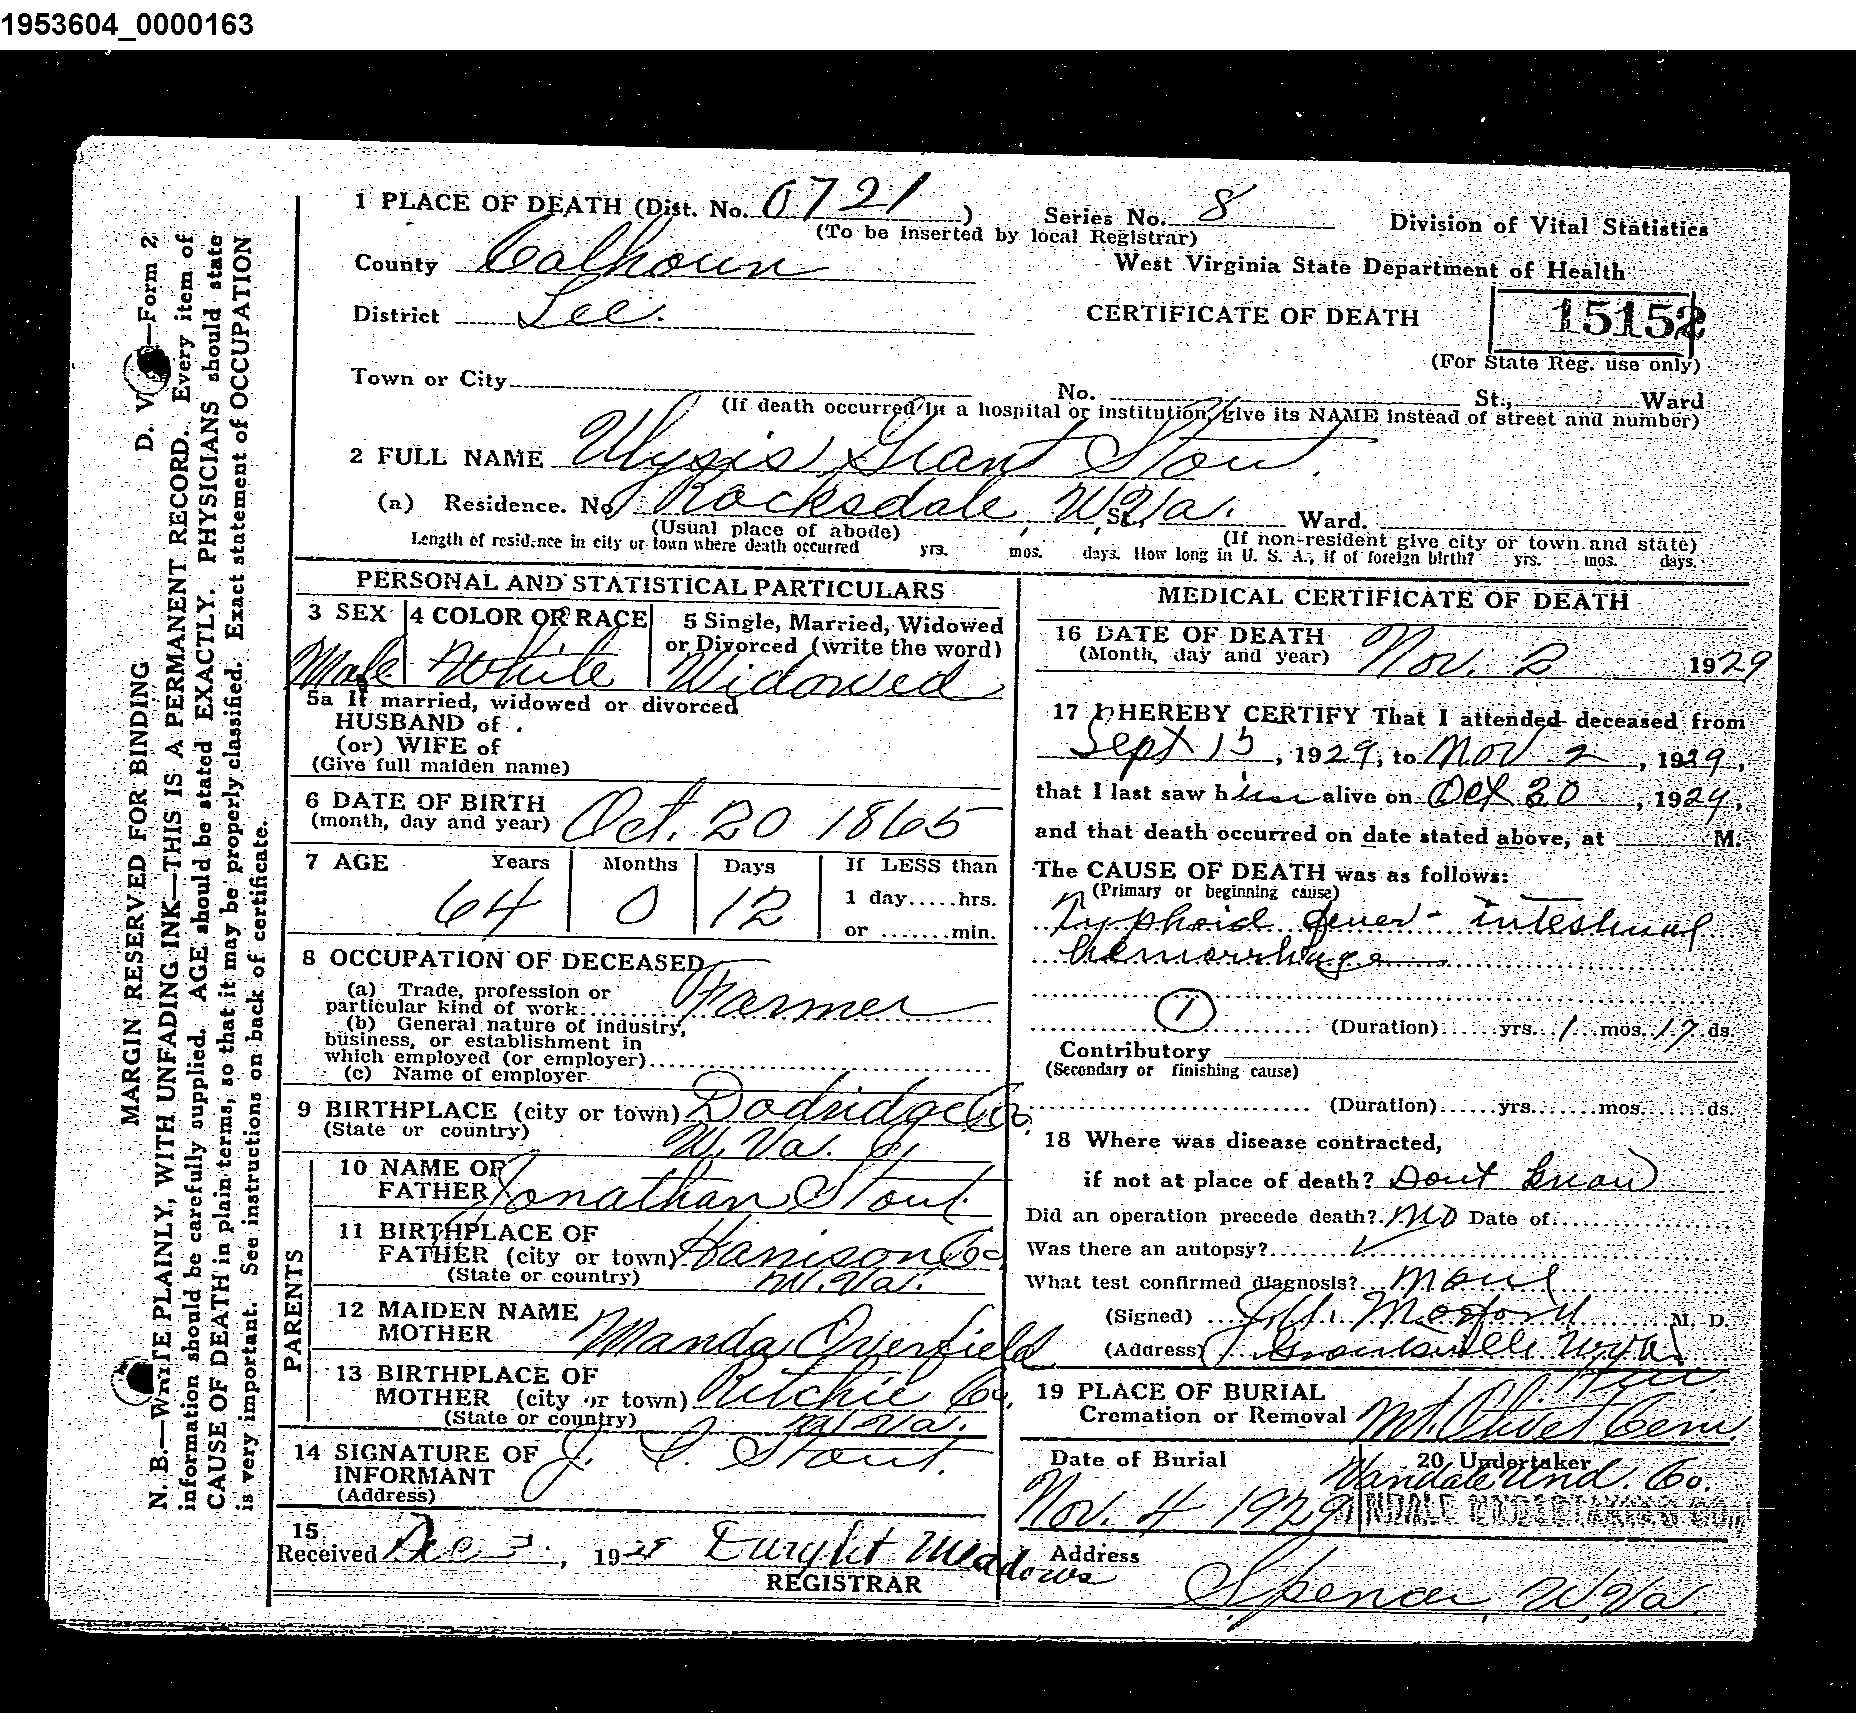 1953604_0000163
1 PLACE OF DEATH (Dist. No. 0721 ) Series No. 8 Division of Vital Statistics
(To be inserted by local Registrar)
County Calhoun West Virginia State Department of Health
District Lee. CERTIFICATE OF DEATH 15152
(For State Reg. use only)
Town or City No. St., Ward
(If death occurred in a hospital or institution, give its NAME instead of street and number)
2 FULL NAME Ulysis Grant Stout.
(a) Residence. No. Rocksdale, W.Va. St. Ward.
(Usual place of abode) (If non-resident give city or town and state)
Length of residence in city or town where death occurred yrs. mos. days. How long in U. S. A., if of foreign birth? yrs. mos. days.
PERSONAL AND STATISTICAL PARTICULARS
3 SEX 4 COLOR OR RACE 5 Single, Married, Widowed
or Divorced (write the word)
Male White Widowed
5a If married, widowed or divorced
HUSBAND of
(or) WIFE of
(Give full maiden name)
6 DATE OF BIRTH
(month, day and year) Oct. 20 1865
7 AGE Years Months Days If LESS than
64 0 12 1 day.....hrs.
or .......min.
8 OCCUPATION OF DECEASED
(a) Trade, profession or
particular kind of work Farmer
(b) General nature of industry,
business, or establishment in
which employed (or employer)
(c) Name of employer
9 BIRTHPLACE (city or town) Dodridge Co.
(State or country) W. Va.
PARENTS
10 NAME OF
FATHER Jonathan Stout.
11 BIRTHPLACE OF
FATHER (city or town) Harrison Co.
(State or country) W. Va.
12 MAIDEN NAME
MOTHER Manda Overfield
13 BIRTHPLACE OF
MOTHER (city or town) Ritchie Co.
(State or country) W. Va.
14 SIGNATURE OF
INFORMANT J. S. Stout.
(Address)
15
Received Dec 3, 1929 Dwight Meadows
REGISTRAR
MEDICAL CERTIFICATE OF DEATH
16 DATE OF DEATH
(Month, day and year) Nov. 2 1929
17 I HEREBY CERTIFY That I attended deceased from
Sept 15, 1929, to Nov 2, 1929,
that I last saw him alive on Oct 30, 1929,
and that death occurred on date stated above, at M.
The CAUSE OF DEATH was as follows:
(Primary or beginning cause)
Typhoid fever - intestinal
hemorrhage
1 (Duration) yrs. 1 mos. 17 ds.
Contributory
(Secondary or finishing cause)
(Duration) yrs. mos. ds.
18 Where was disease contracted,
if not at place of death? Dont know
Did an operation precede death? no Date of
Was there an autopsy?
What test confirmed diagnosis? none
(Signed) M. D.
(Address) Grantsville W Va
19 PLACE OF BURIAL
Cremation or Removal Mt. Olivet Cem.
Date of Burial 20 Undertaker
Nov. 4 1929 Vandale Und. Co.
VANDALE UNDERTAKING CO.
Address
Spencer, W.Va.
D. V. S.—Form 2
MARGIN RESERVED FOR BINDING
N. B.—WRITE PLAINLY, WITH UNFADING INK—THIS IS A PERMANENT RECORD. Every item of
information should be carefully supplied. AGE should be stated EXACTLY. PHYSICIANS should state
CAUSE OF DEATH in plain terms, so that it may be properly classified. Exact statement of OCCUPATION
is very important. See instructions on back of certificate.